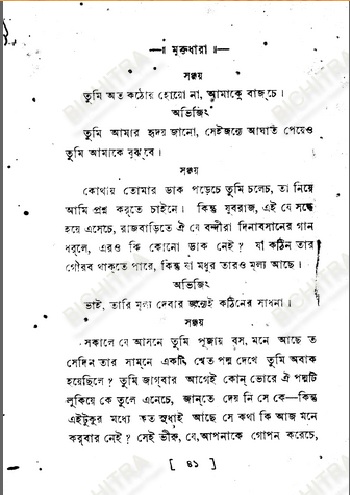 —॥ মুক্তধারা ॥—
সঞ্জয়
তুমি অত কঠোর হোয়ো না, আমাকে বাজ্‌চে।
অভিজিৎ
তুমি আমার হৃদয় জানো, সেইজন্যে আঘাত পেয়েও
তুমি আমাকে বুঝ্‌বে।
সঞ্জয়
কোথায় তোমার ডাক পড়েচে তুমি চলেচ, তা নিয়ে
আমি প্রশ্ন কর্‌তে চাইনে। কিন্তু যুবরাজ, এই যে সন্ধে
হয়ে এসেচে, রাজবাড়িতে ঐ যে বন্দীরা দিনাবসানের গান
ধর্‌লে, এরও কি কোনো ডাক নেই? যা কঠিন তার
গৌরব থাক্‌তে পারে, কিন্তু যা মধুর তারও মূল্য আছে।
অভিজিৎ
ভাই, তারি মূল্য দেবার জন্যেই কঠিনের সাধনা॥
সঞ্জয়
সকালে যে আসনে তুমি পূজায় বস, মনে আছে ত
সেদিন তার সাম্‌নে একটি শ্বেত পদ্ম দেখে তুমি অবাক
হয়েছিলে? তুমি জাগ্‌বার আগেই কোন্ ভোরে ঐ পদ্মটি
লুকিয়ে কে তুলে এনেচে, জান্‌তে দেয় নি সে কে—কিন্তু
এইটুকুর মধ্যে কত সুধাই আছে সে কথা কি আজ মনে
কর্‌বার নেই? সেই ভীরু, যে, আপনাকে গোপন করেচে,
[ ৪১ ]
BICHITRA